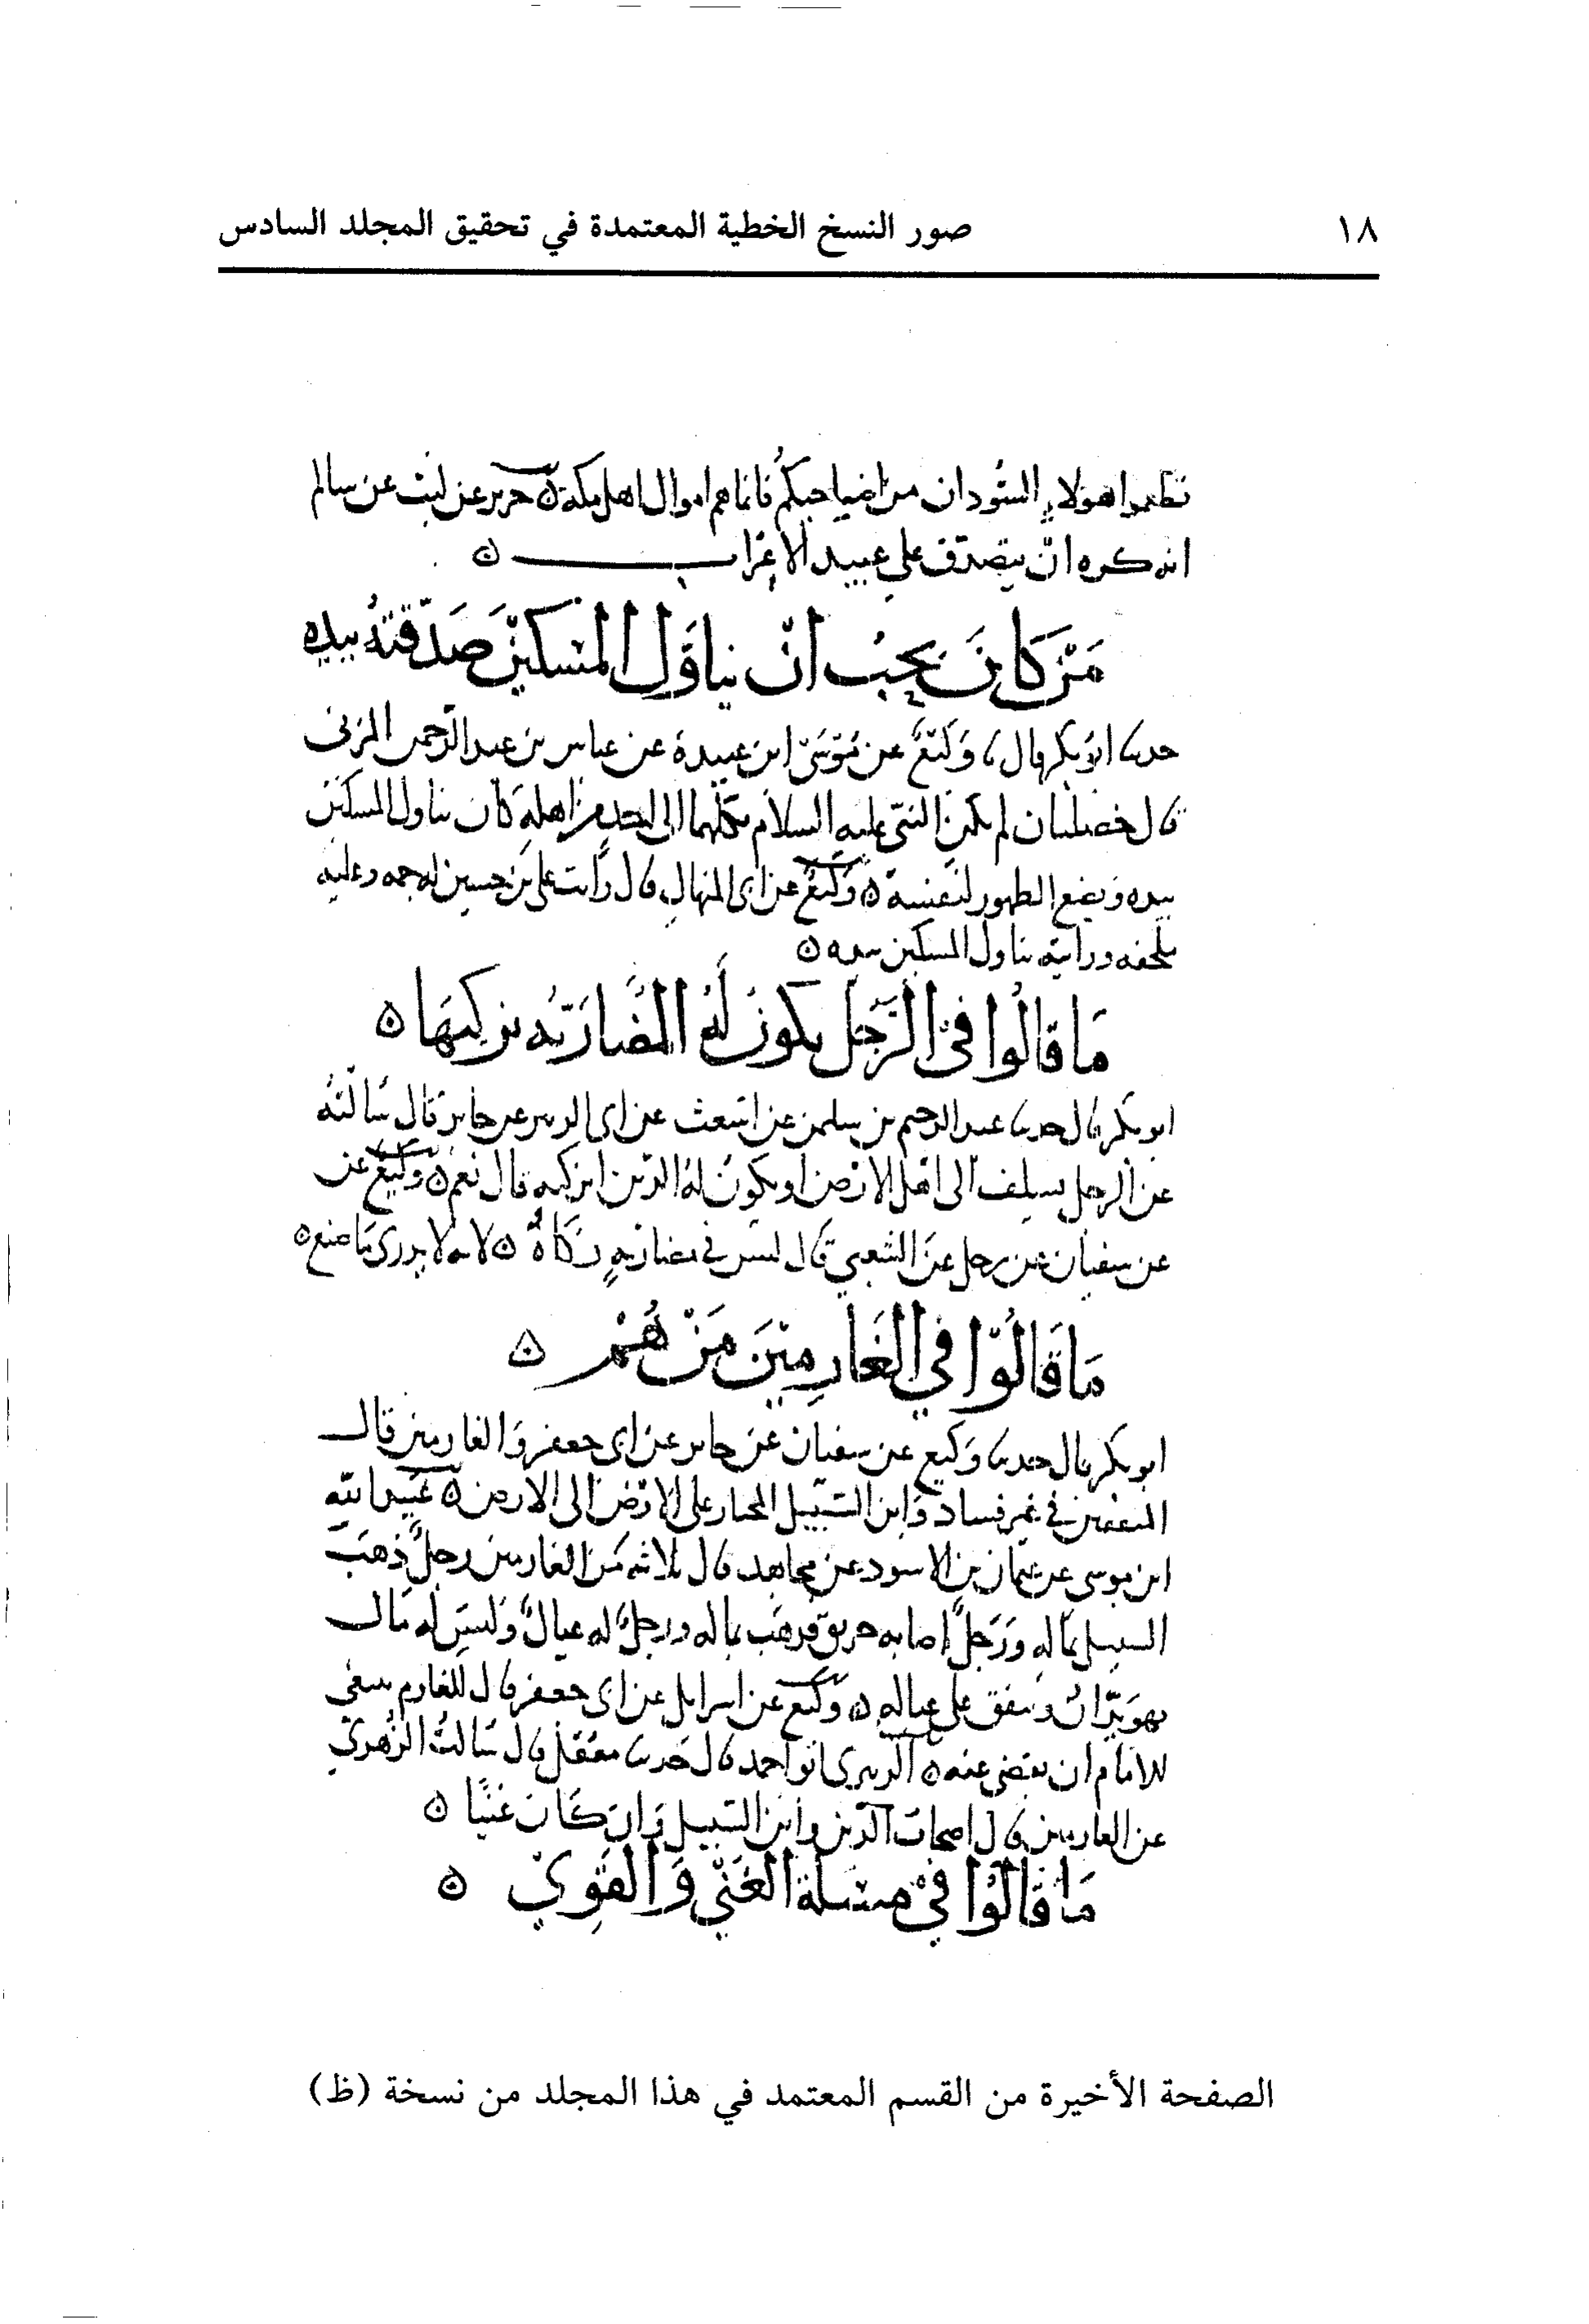 ١٨
صور النسخ الخطية المعتمدة في تحقيق المجلد السادس
هولاء السودان من اضياحيكم فانما هم اموال اهل مكة ه جرير عن ليث عن سالم
انه كره ان يتصدق علي عبيد الاعراب ه
من كان يحب ان يناول المسكين صدقته بيده
حدثنا ابو بكر قال ثنا وكيع عن موسى ابن عبيدة عن عباس بن عبد الرحمن المزنى
قال خصلتان لم يكن النبي عليه السلام يكلهما الى احد من اهله كان يناول المسكين
بيده ويضع الطهور لنفسه ه وكيع عن ابى المنهال قال رأيت على بن حسين له جمه وعليه
ملحفه ورايته يناول المسكين بيده ه
ما قالوا في الرجل يكون له المضاربه يزكيها ه
ابو بكر قال حدثنا عبد الرحيم بن سليمن عن اشعث عن ابى الزبير عن جابر قال سالته
عن الرجل يسلف الى اهل الارض او يكون له الدين ايزكيه قال نعم ه وكيع عن
عن سفيان عن رجل عن الشعبي قال ليس في مضاربه زكاة ه لانه لا يدرى ما صنع ه
ما قالوا في الغارمين من هم ه
ابو بكر قال حدثنا وكيع عن سفيان عن جابر عن ابى جعفر والغارمين قال
المنفقين في غير فساد وابن السبيل المجتاز على الارض الى الارض ه عبيد الله
ابن موسى عن عثمان بن الاسود عن مجاهد قال ثلاثه من الغارمين رجل ذهب
السيل بماله ورجل اصابه حريق فذهب بماله ورجل له عيال وليس له مال
فهو يدان وينفق على عياله ه وكيع عن اسرائيل عن ابى جعفر قال للغارم ينبغي
للامام ان يقضى عنه ه الزبيرى ابو احمد قال حدثنا معقل قال سالت الزهري
عن الغارمين قال اصحاب الدين وابن السبيل وان كان غنيا ه
ما قالوا في مسئلة الغني والقوي ه
الصفحة الأخيرة من القسم المعتمد في هذا المجلد من نسخة (ظ)